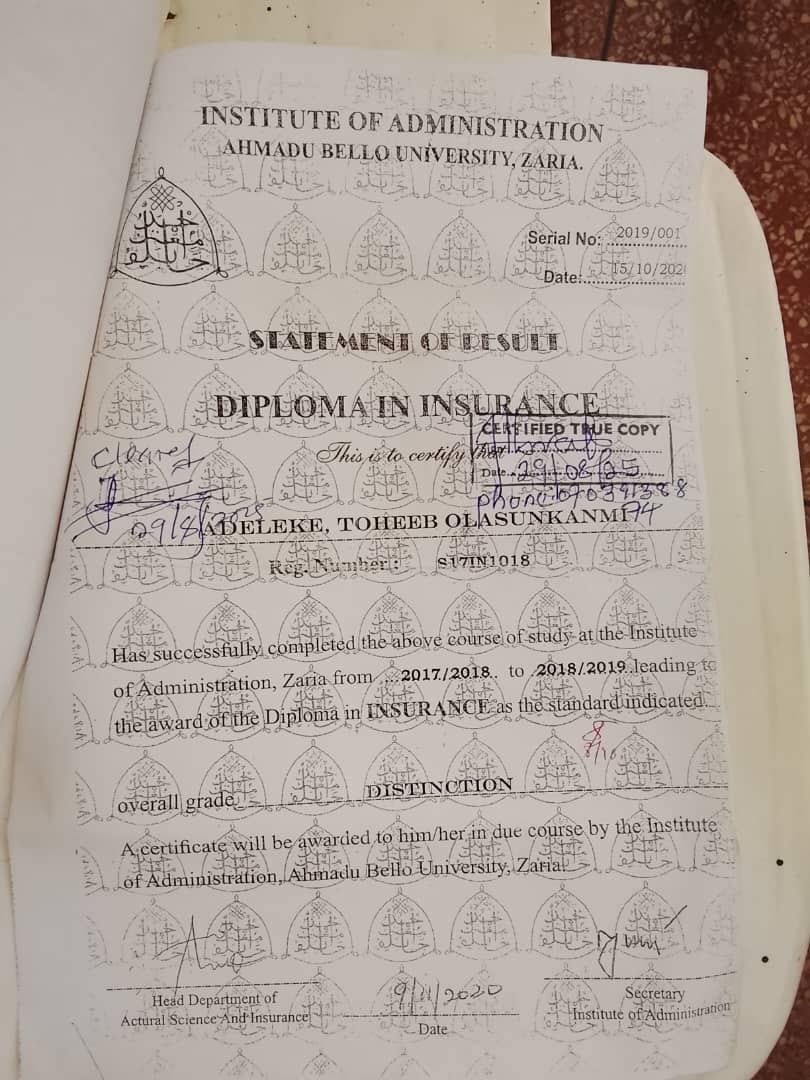 INSTITUTE OF ADMINISTRATION
AHMADU BELLO UNIVERSITY, ZARIA.
Serial No: 2019/001
Date: 15/10/202
STATEMENT OF RESULT
DIPLOMA IN INSURANCE
CERTIFIED TRUE COPY
This is to certify that
Date 29/08/25
Cleared
29/8/2025
ADELEKE, TOHEEB OLASUNKANMI
Reg. Number: S17IN1018
Has successfully completed the above course of study at the Institute
of Administration, Zaria from ...2017/2018.. to .2018/2019..leading to
the award of the Diploma in INSURANCE as the standard indicated.
overall grade DISTINCTION
A certificate will be awarded to him/her in due course by the Institute
of Administration, Ahmadu Bello University, Zaria.
Head Department of
Actural Science And Insurance
9/11/2020
Date
Secretary
Institute of Administration